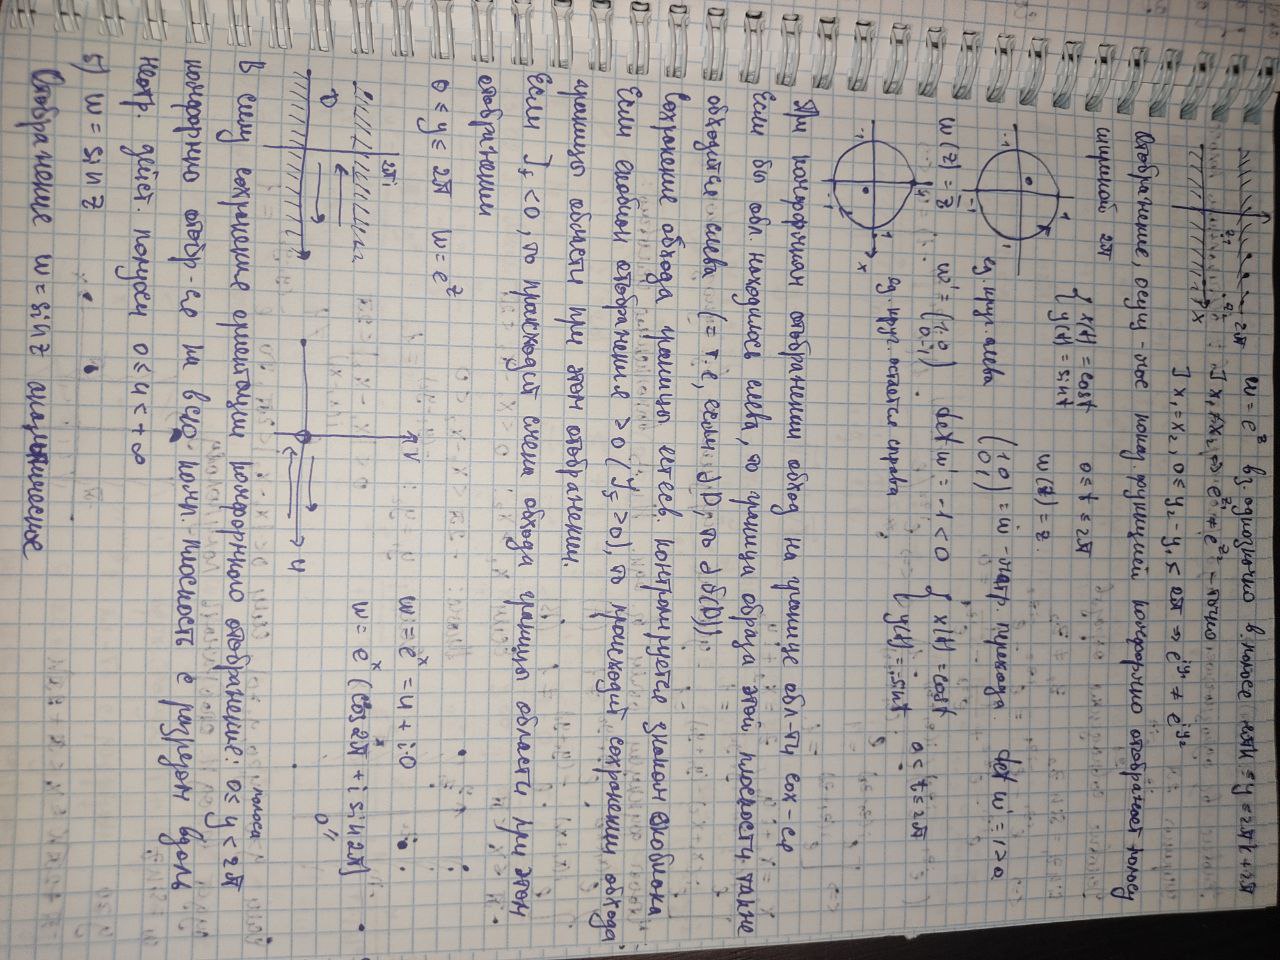 w = e^z вз. однозначно в полосе 2πk ≤ y ≤ 2πk + 2π
] x₁ ≠ x₂ ⇒ e^z₁ ≠ e^z₂ - точно
] x₁ = x₂, 0 ≤ y₂ - y₁ ≤ 2π ⇒ e^iy₁ ≠ e^iy₂
2π
z₁
z₂
x
Отображение, осущ-мое показ. функцией конформно отображает полосу
шириной 2π
{ x(t) = cost
y(t) = sint
0 ≤ t ≤ 2π
w(z) = z.
1
-1
1
-1
ед. круг слева
(1 0
0 1) = w' - матр. перехода. det w' = 1 > 0
w(z) = z̄
w' = (1 0
0 -1) det w' = -1 < 0
{ x(t) = cost
y(t) = -sint
0 ≤ t ≤ 2π
-1
1
x
ед. круг. остается справа
При конформном отображении обход на границе обл-ти сох-ся
Если бы обл. находилось слева, то граница образа этой плоскости также
обходится слева (= т.е, если ∂D, то ∂f(D))
Сохранение обхода границы естеств. контролируется знаком якобиана
Если якобиан отображения > 0 (J_f > 0), то происходит сохранение обхода
границы области при этом отображении.
Если J_f < 0, то происходит смена обхода границы области при этом
отображении
0 ≤ y ≤ 2π w = e^z
w = e^x = u + i·0
w = e^x (cos 2π + i sin 2π)
0
2πi
D
v
u
В силу сохранения ориентации конформного отображение: полоса 0 ≤ y < 2π
конформно отобр-ся на всю компл. плоскость с разрезом вдоль
неотр. дейст. полуоси 0 ≤ u < +∞
5) w = sin z
Отображение w = sin z